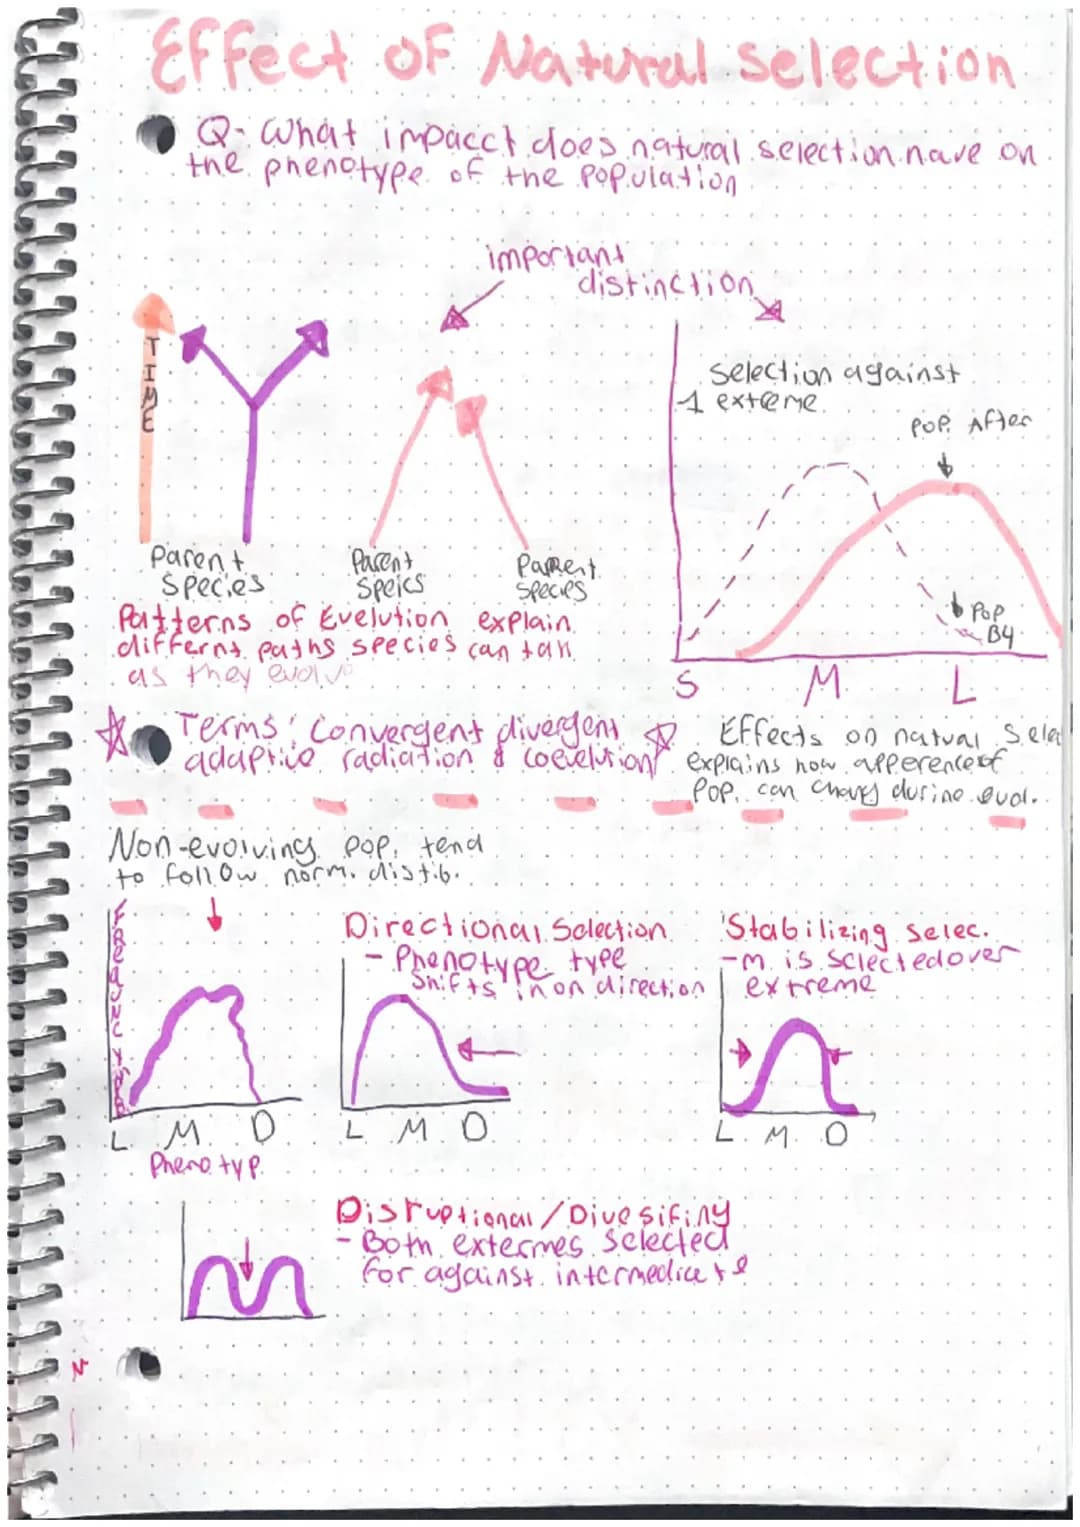 Effect of Natural Selection
Q: What impacct does natural selection have on
the phenotype of the population
important
distinction
TIME
Selection against
1 extreme
Pop. After
Parent
Species
Parent
Speics
Parrent
Species
Pop
B4
S M L
Patterns of Evelution explain
differnt paths species can tak
as they evolv
Terms: Convergent divergent
adaptive radiation & coevelution
Effects on natual Selec
explains how apperence of
Pop. can during evol.
Non-evolving pop. tend
to follow norm. distib.
Directional Selection
- Phenotype type
shifts in on direction
Stabilizing selec.
- m is selected over
extreme
L M D
Phenotyp.
L M D
L M D
Disruptional/Divesifiny
- Both extermes selected
for against intermedicate